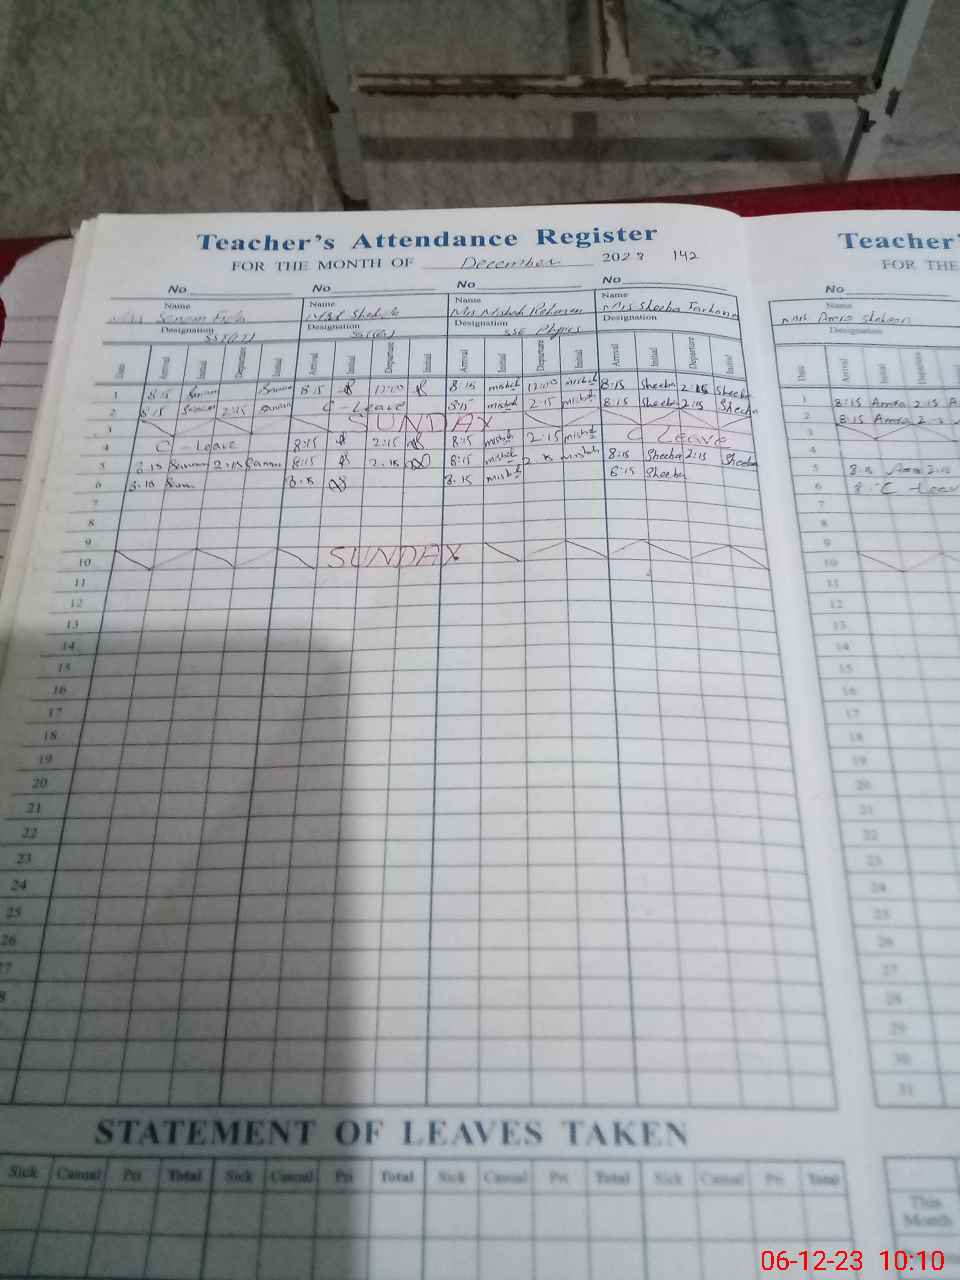 Teacher's Attendance Register
FOR THE MONTH OF December 2023 142
No No No No
Name Name Name Name
Mrs Sheeba Farhana
Designation Designation Designation Designation
SST SST SSE Physics
Date Arrival Initial Departure Initial Arrival Initial Departure Initial Arrival Initial Departure Initial Arrival Initial Departure Initial
1 8:15 Sanam Sanam 8:15 12:00 8:15 mishal 12:00 mishal 8:15 Sheeba 2:15 Sheeba
2 8:15 Sanam 2:15 Sanam C - Leave 8:15 mishal 2:15 mishal 8:15 Sheeba 2:15 Sheeba
3 SUNDAY
4 C - Leave 8:15 2:15 8:15 mishal 2:15 mishal C Leave
5 8:15 Sanam 2:15 Sanam 8:15 2:15 8:15 mishal 2:15 mishal 8:15 Sheeba 2:15 Sheeba
6 8:15 8:15 8:15 mishal 8:15 Sheeba
7
8
9
10 SUNDAY
11
12
13
14
15
16
17
18
19
20
21
22
23
24
25
26
27
8
STATEMENT OF LEAVES TAKEN
Sick Casual Pri Total Sick Casual Pri Total Sick Casual Pri Total Sick Casual Pri Total
Teacher'
FOR THE
No
Name
Designation
Date Arrival Initial Departure
1 8:15 Amra 2:15 A
2 8:15 Amra
3
4
5 8:15 Amra 2:15
6 C - Leav
7
8
9
10
11
12
13
14
15
16
17
18
19
20
21
22
23
24
25
26
27
28
29
30
31
This
Month
06-12-23 10:10